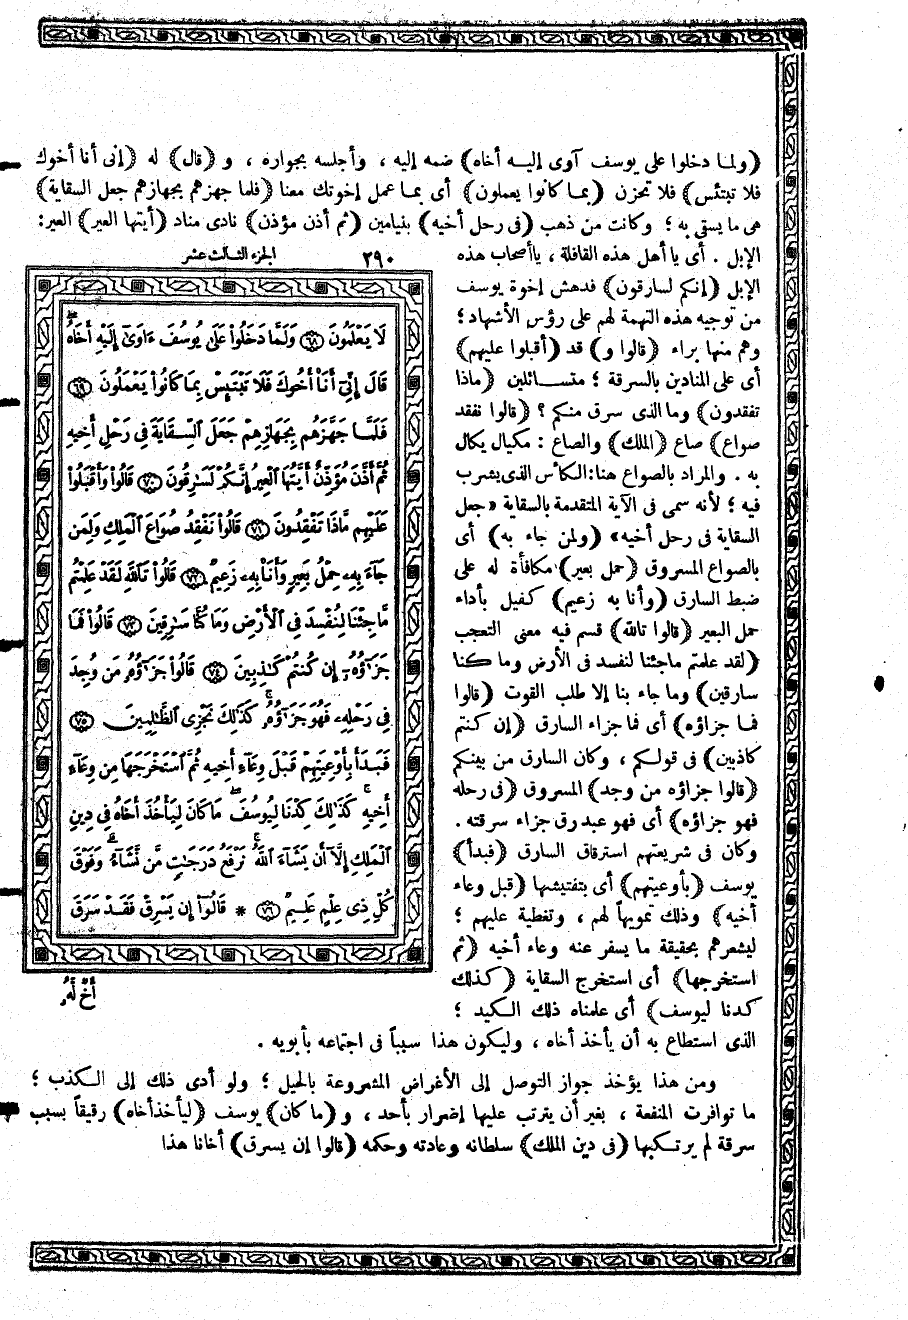 (ولما دخلوا على يوسف آوى إليه أخاه) ضمه إليه ، وأجلسه بجواره ، و (قال) له (إنى أنا أخوك
فلا تبتئس) فلا تحزن (بما كانوا يعملون) أى بما عمل إخوتك معنا (فلما جهزهم بجهازهم جعل السقاية)
هى ما يستقى به ؛ وكانت من ذهب (فى رحل أخيه) بنيامين (ثم أذن مؤذن) نادى مناد (أيتها العير) العير:
الإبل . أى يا أهل هذه القافلة ، ياأصحاب هذه
الإبل (إنكم لسارقون) فدهش إخوة يوسف
من توجيه هذه التهمة لهم على رؤس الأشهاد ؛
وهم منها براء (قالوا و) قد (أقبلوا عليهم)
أى على المنادين بالسرقة ؛ متسائلين (ماذا
تفقدون) وما الذى سرق منكم ؟ (قالوا نفقد
صواع) صاع (الملك) والصاع : مكيال يكال
به . والمراد بالصواع هنا : الكأس الذى يشرب
فيه ؛ لأنه سمى فى الآية المتقدمة بالسقاية «جعل
السقاية فى رحل أخيه» (ولمن جاء به) أى
بالصواع المسروق (حمل بعير) مكافأة له على
ضبط السارق (وأنا به زعيم) كفيل بأداء
حمل البعير (قالوا تالله) قسم فيه معنى التعجب
(لقد علمتم ماجئنا لنفسد فى الأرض وما كنا
سارقين) وما جاء بنا إلا طلب القوت (قالوا
فما جزاؤه) أى فما جزاء السارق (إن كنتم
كاذبين) فى قولكم ، وكان السارق من بينكم
(قالوا جزاؤه من وجد) المسروق (فى رحله
فهو جزاؤه) أى فهو عبد رق جزاء سرقته .
وكان فى شريعتهم استرقاق السارق (فبدأ)
يوسف (بأوعيتهم) أى بتفتيشها (قبل وعاء
أخيه) وذلك تمويهاً لهم ، وتغطية عليهم ؛
ليشعرهم بحقيقة ما يسفر عنه وعاء أخيه (ثم
استخرجها) أى استخرج السقاية (كذلك
كدنا ليوسف) أى علمناه ذلك الكيد ؛
الجزء الثالث عشر ٢٩٠
لَا يَعْلَمُونَ ٦٨ وَلَمَّا دَخَلُوا۟ عَلَىٰ يُوسُفَ ءَاوَىٰٓ إِلَيْهِ أَخَاهُ
قَالَ إِنِّىٓ أَنَا۠ أَخُوكَ فَلَا تَبْتَئِسْ بِمَا كَانُوا۟ يَعْمَلُونَ ٦٩
فَلَمَّا جَهَّزَهُم بِجَهَازِهِمْ جَعَلَ ٱلسِّقَايَةَ فِى رَحْلِ أَخِيهِ
ثُمَّ أَذَّنَ مُؤَذِّنٌ أَيَّتُهَا ٱلْعِيرُ إِنَّكُمْ لَسَٰرِقُونَ ٧٠ قَالُوا۟ وَأَقْبَلُوا۟
عَلَيْهِم مَّاذَا تَفْقِدُونَ ٧١ قَالُوا۟ نَفْقِدُ صُوَاعَ ٱلْمَلِكِ وَلِمَن
جَآءَ بِهِۦ حِمْلُ بَعِيرٍ وَأَنَا۠ بِهِۦ زَعِيمٌ ٧٢ قَالُوا۟ تَٱللَّهِ لَقَدْ عَلِمْتُم
مَّا جِئْنَا لِنُفْسِدَ فِى ٱلْأَرْضِ وَمَا كُنَّا سَٰرِقِينَ ٧٣ قَالُوا۟ فَمَا
جَزَٰٓؤُهُۥٓ إِن كُنتُمْ كَٰذِبِينَ ٧٤ قَالُوا۟ جَزَٰٓؤُهُۥ مَن وُجِدَ
فِى رَحْلِهِۦ فَهُوَ جَزَٰٓؤُهُۥ ۚ كَذَٰلِكَ نَجْزِى ٱلظَّٰلِمِينَ ٧٥
فَبَدَأَ بِأَوْعِيَتِهِمْ قَبْلَ وِعَآءِ أَخِيهِ ثُمَّ ٱسْتَخْرَجَهَا مِن وِعَآءِ
أَخِيهِ ۚ كَذَٰلِكَ كِدْنَا لِيُوسُفَ ۖ مَا كَانَ لِيَأْخُذَ أَخَاهُ فِى دِينِ
ٱلْمَلِكِ إِلَّآ أَن يَشَآءَ ٱللَّهُ ۚ نَرْفَعُ دَرَجَٰتٍ مَّن نَّشَآءُ ۗ وَفَوْقَ
كُلِّ ذِى عِلْمٍ عَلِيمٌ ٧٦ * قَالُوٓا۟ إِن يَسْرِقْ فَقَدْ سَرَقَ
أَخٌ لَّهُۥ
الذى استطاع به أن يأخذ أخاه ، وليكون هذا سبباً فى اجتماعه بأبويه .
ومن هذا يؤخذ جواز التوصل إلى الأغراض المشروعة بالحيل ؛ ولو أدى ذلك إلى الكذب ؛
ما توافرت المنفعة ، بغير أن يترتب عليها إضرار بأحد ، و (ما كان) يوسف (ليأخذ أخاه) رقيقاً بسبب
سرقة لم يرتكبها (فى دين الملك) سلطانه وعادته وحكمه (قالوا إن يسرق) أخانا هذا